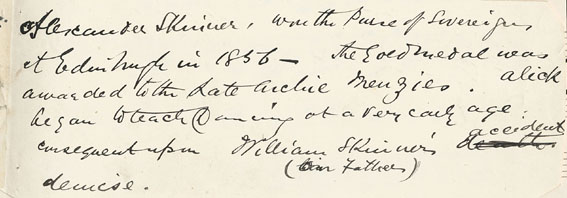 Alexander Skinner, won the Purse of Sovereigns
At Edinburgh in 1856 — the Gold medal was
awarded to the Late Archie Menzies. alick
began to teach Dancing at a very early age.
consequent upon William Skinner's death accident
(Our Father)
demise.